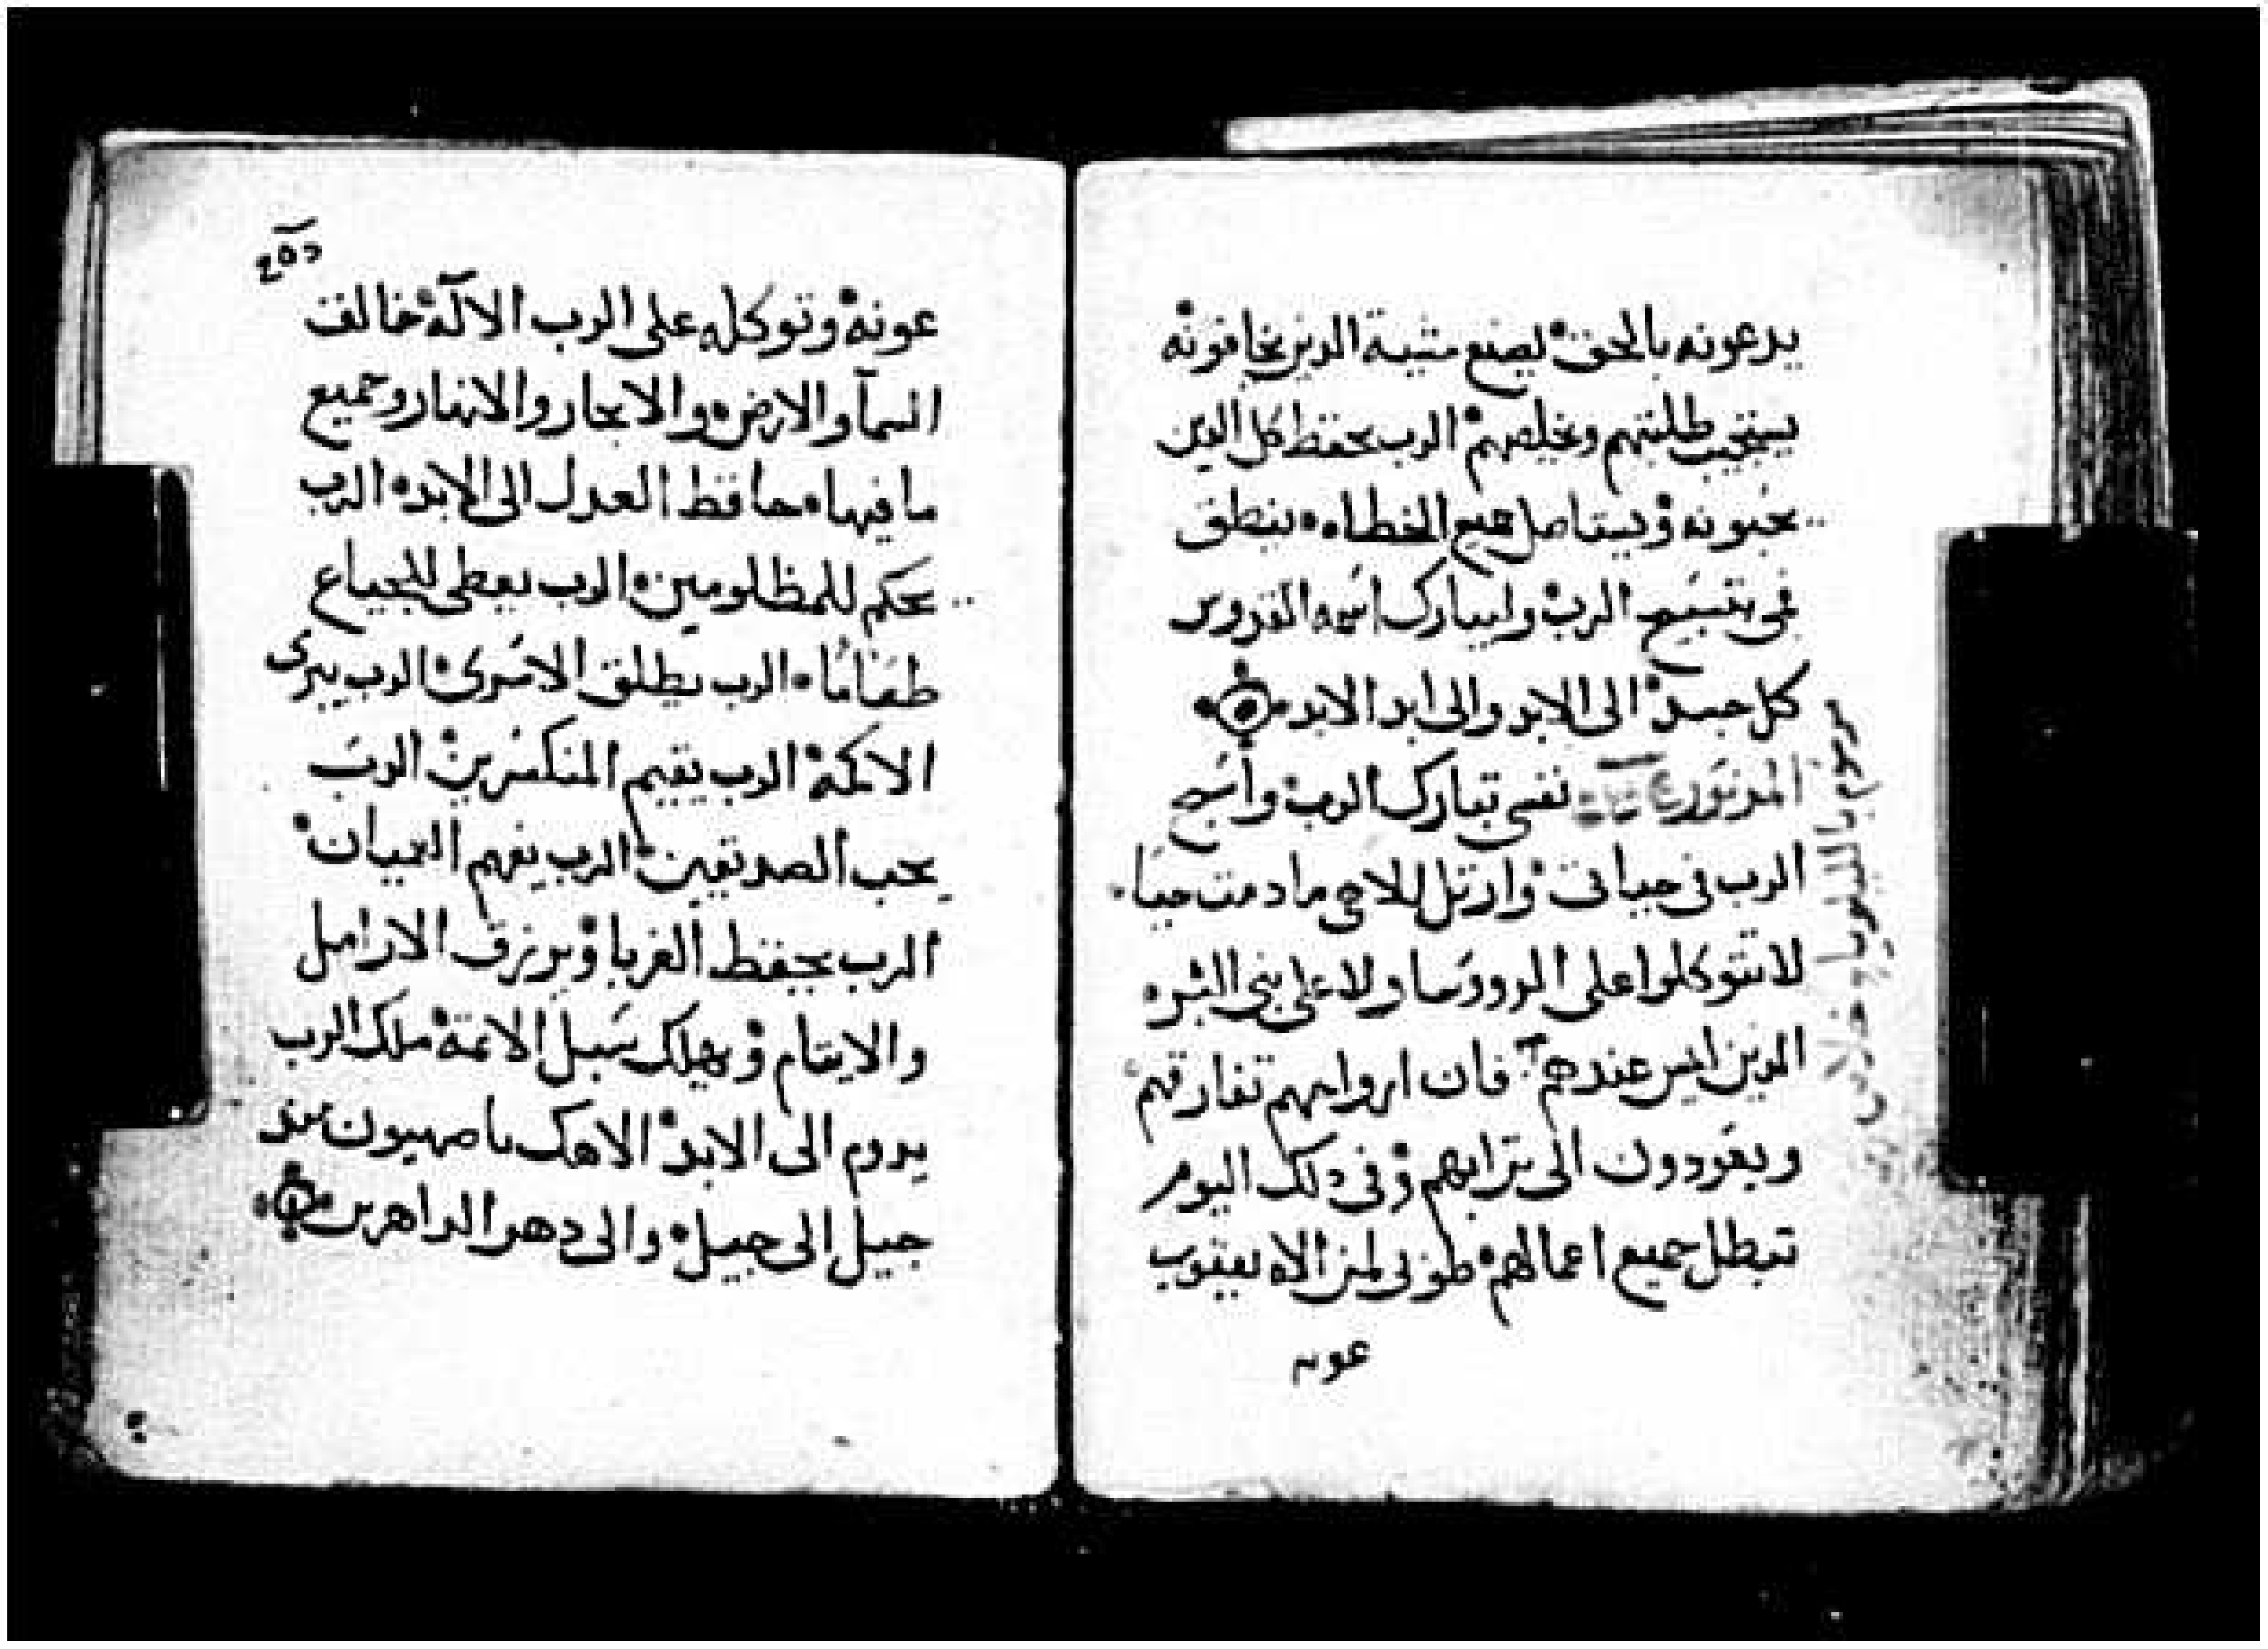 يدعونه بالحق لصنع مشية الدين يخافونه
يستجيب طلبتهم ويخلصهم الرب يحفظ كل الدين
يحبونه ويستاصل جميع الخطاه ينطق
فمى بتسبيح الرب وليبارك اسمه القدوس
كل جسد الى الابد والى ابد الابد
المزمور نفسى تبارك الرب واسبح
الرب فى حياتى وارتل للاهى ما دمت حيا
لا تتوكلوا على الروسا ولا على بنى البشر
الدين ليس عندهم فان ارواحهم تفارقهم
ويعودون الى ترابهم وفى دلك اليوم
تبطل جميع اعمالهم طوبى لمن الاه يعقوب
عونه
مرسوم بالليلويا
عونه وتوكله على الرب الاله خالق
السما والارض والابحار والانهار وجميع
ما فيها حافظ العدل الى الابد الرب
يحكم للمظلومين الرب يعطى للجياع
طعاما الرب يطلق الاسرى الرب يبرى
الاكمه الرب يقيم المنكسرين الرب
يحب الصديقين الرب يفهم العميان
الرب يحفظ الغربا ويرزق الارامل
والايتام ويهلك سبل الاثمة ملك الرب
يدوم الى الابد الاهك ياصهيون مند
جيل الى جيل والى دهر الداهرين